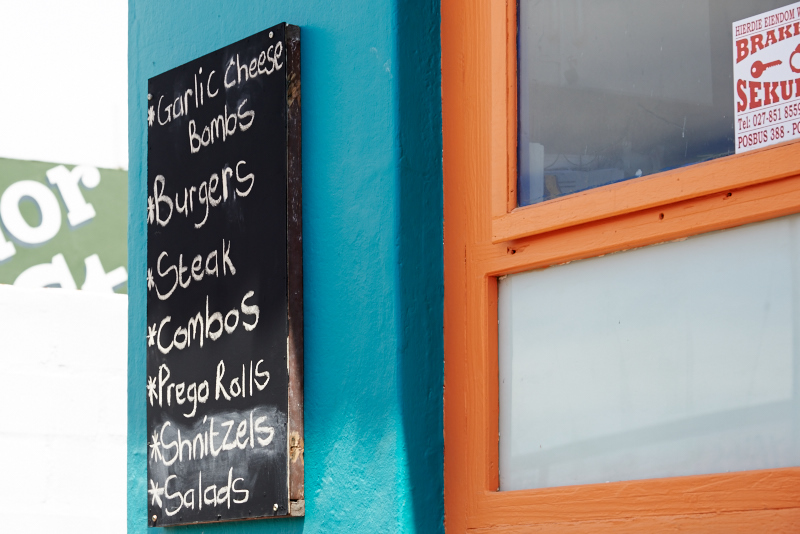 *Garlic Cheese
Bombs
*Burgers
*Steak
*Combos
*Prego Rolls
*Shnitzels
*Salads
HIERDIE EIENDOM
Tel: 027-851 855
POSBUS 388 - PO